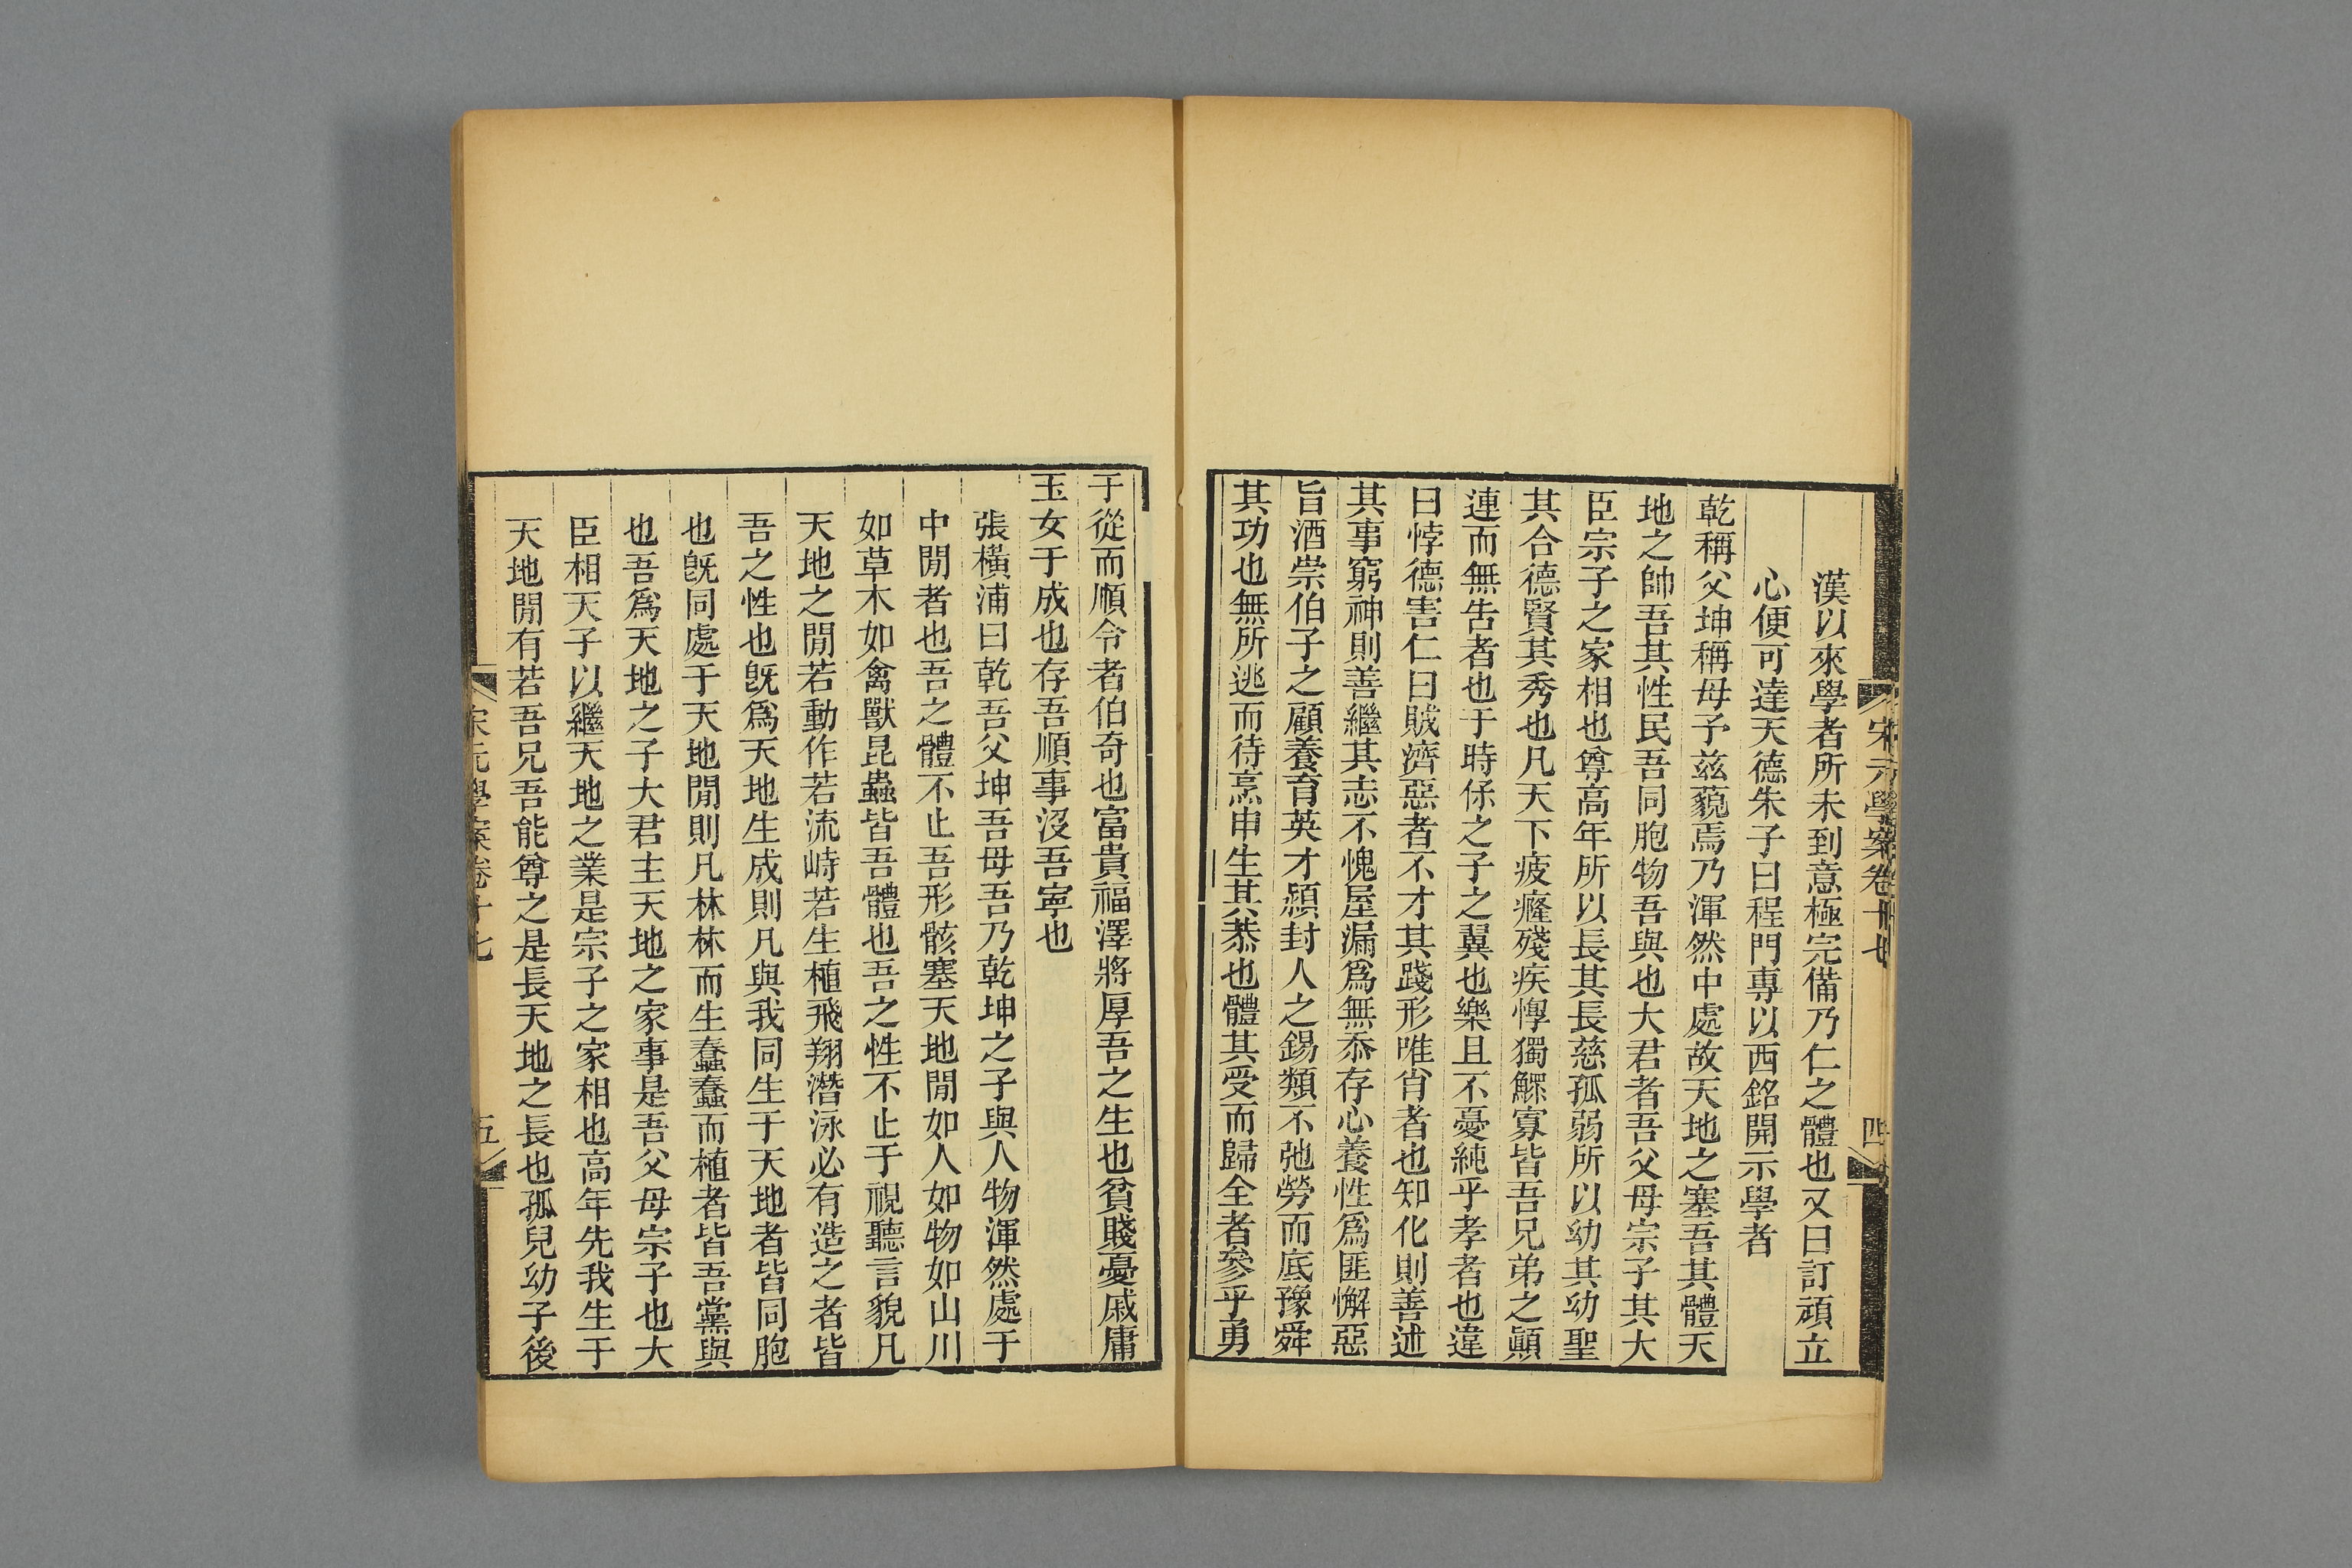 宋元學案卷十七
四
漢以來學者所未到意極完備乃仁之體也又曰訂頑立
心便可達天德朱子曰程門專以西銘開示學者
乾稱父坤稱母予茲藐焉乃渾然中處故天地之塞吾其體天
地之帥吾其性民吾同胞物吾與也大君者吾父母宗子其大
臣宗子之家相也尊高年所以長其長慈孤弱所以幼其幼聖
其合德賢其秀也凡天下疲癃殘疾惸獨鰥寡皆吾兄弟之顚
連而無告者也于時保之子之翼也樂且不憂純乎孝者也違
曰悖德害仁曰賊濟惡者不才其踐形唯肖者也知化則善述
其事窮神則善繼其志不愧屋漏爲無忝存心養性爲匪懈惡
旨酒崇伯子之顧養育英才潁封人之錫類不弛勞而底豫舜
其功也無所逃而待烹申生其恭也體其受而歸全者參乎勇
于從而順令者伯奇也富貴福澤將厚吾之生也貧賤憂戚庸
玉女于成也存吾順事沒吾寧也
張橫浦曰乾吾父坤吾母吾乃乾坤之子與人物渾然處于
中閒者也吾之體不止吾形骸塞天地閒如人如物如山川
如草木如禽獸昆蟲皆吾體也吾之性不止于視聽言貌凡
天地之閒若動作若流峙若生植飛翔潛泳必有造之者皆
吾之性也旣爲天地生成則凡與我同生于天地者皆同胞
也旣同處于天地閒則凡林林而生蠢蠢而植者皆吾黨與
也吾爲天地之子大君主天地之家事是吾父母宗子也大
臣相天子以繼天地之業是宗子之家相也高年先我生于
天地閒有若吾兄吾能尊之是長天地之長也孤兒幼子後
宋元學案卷十七
五